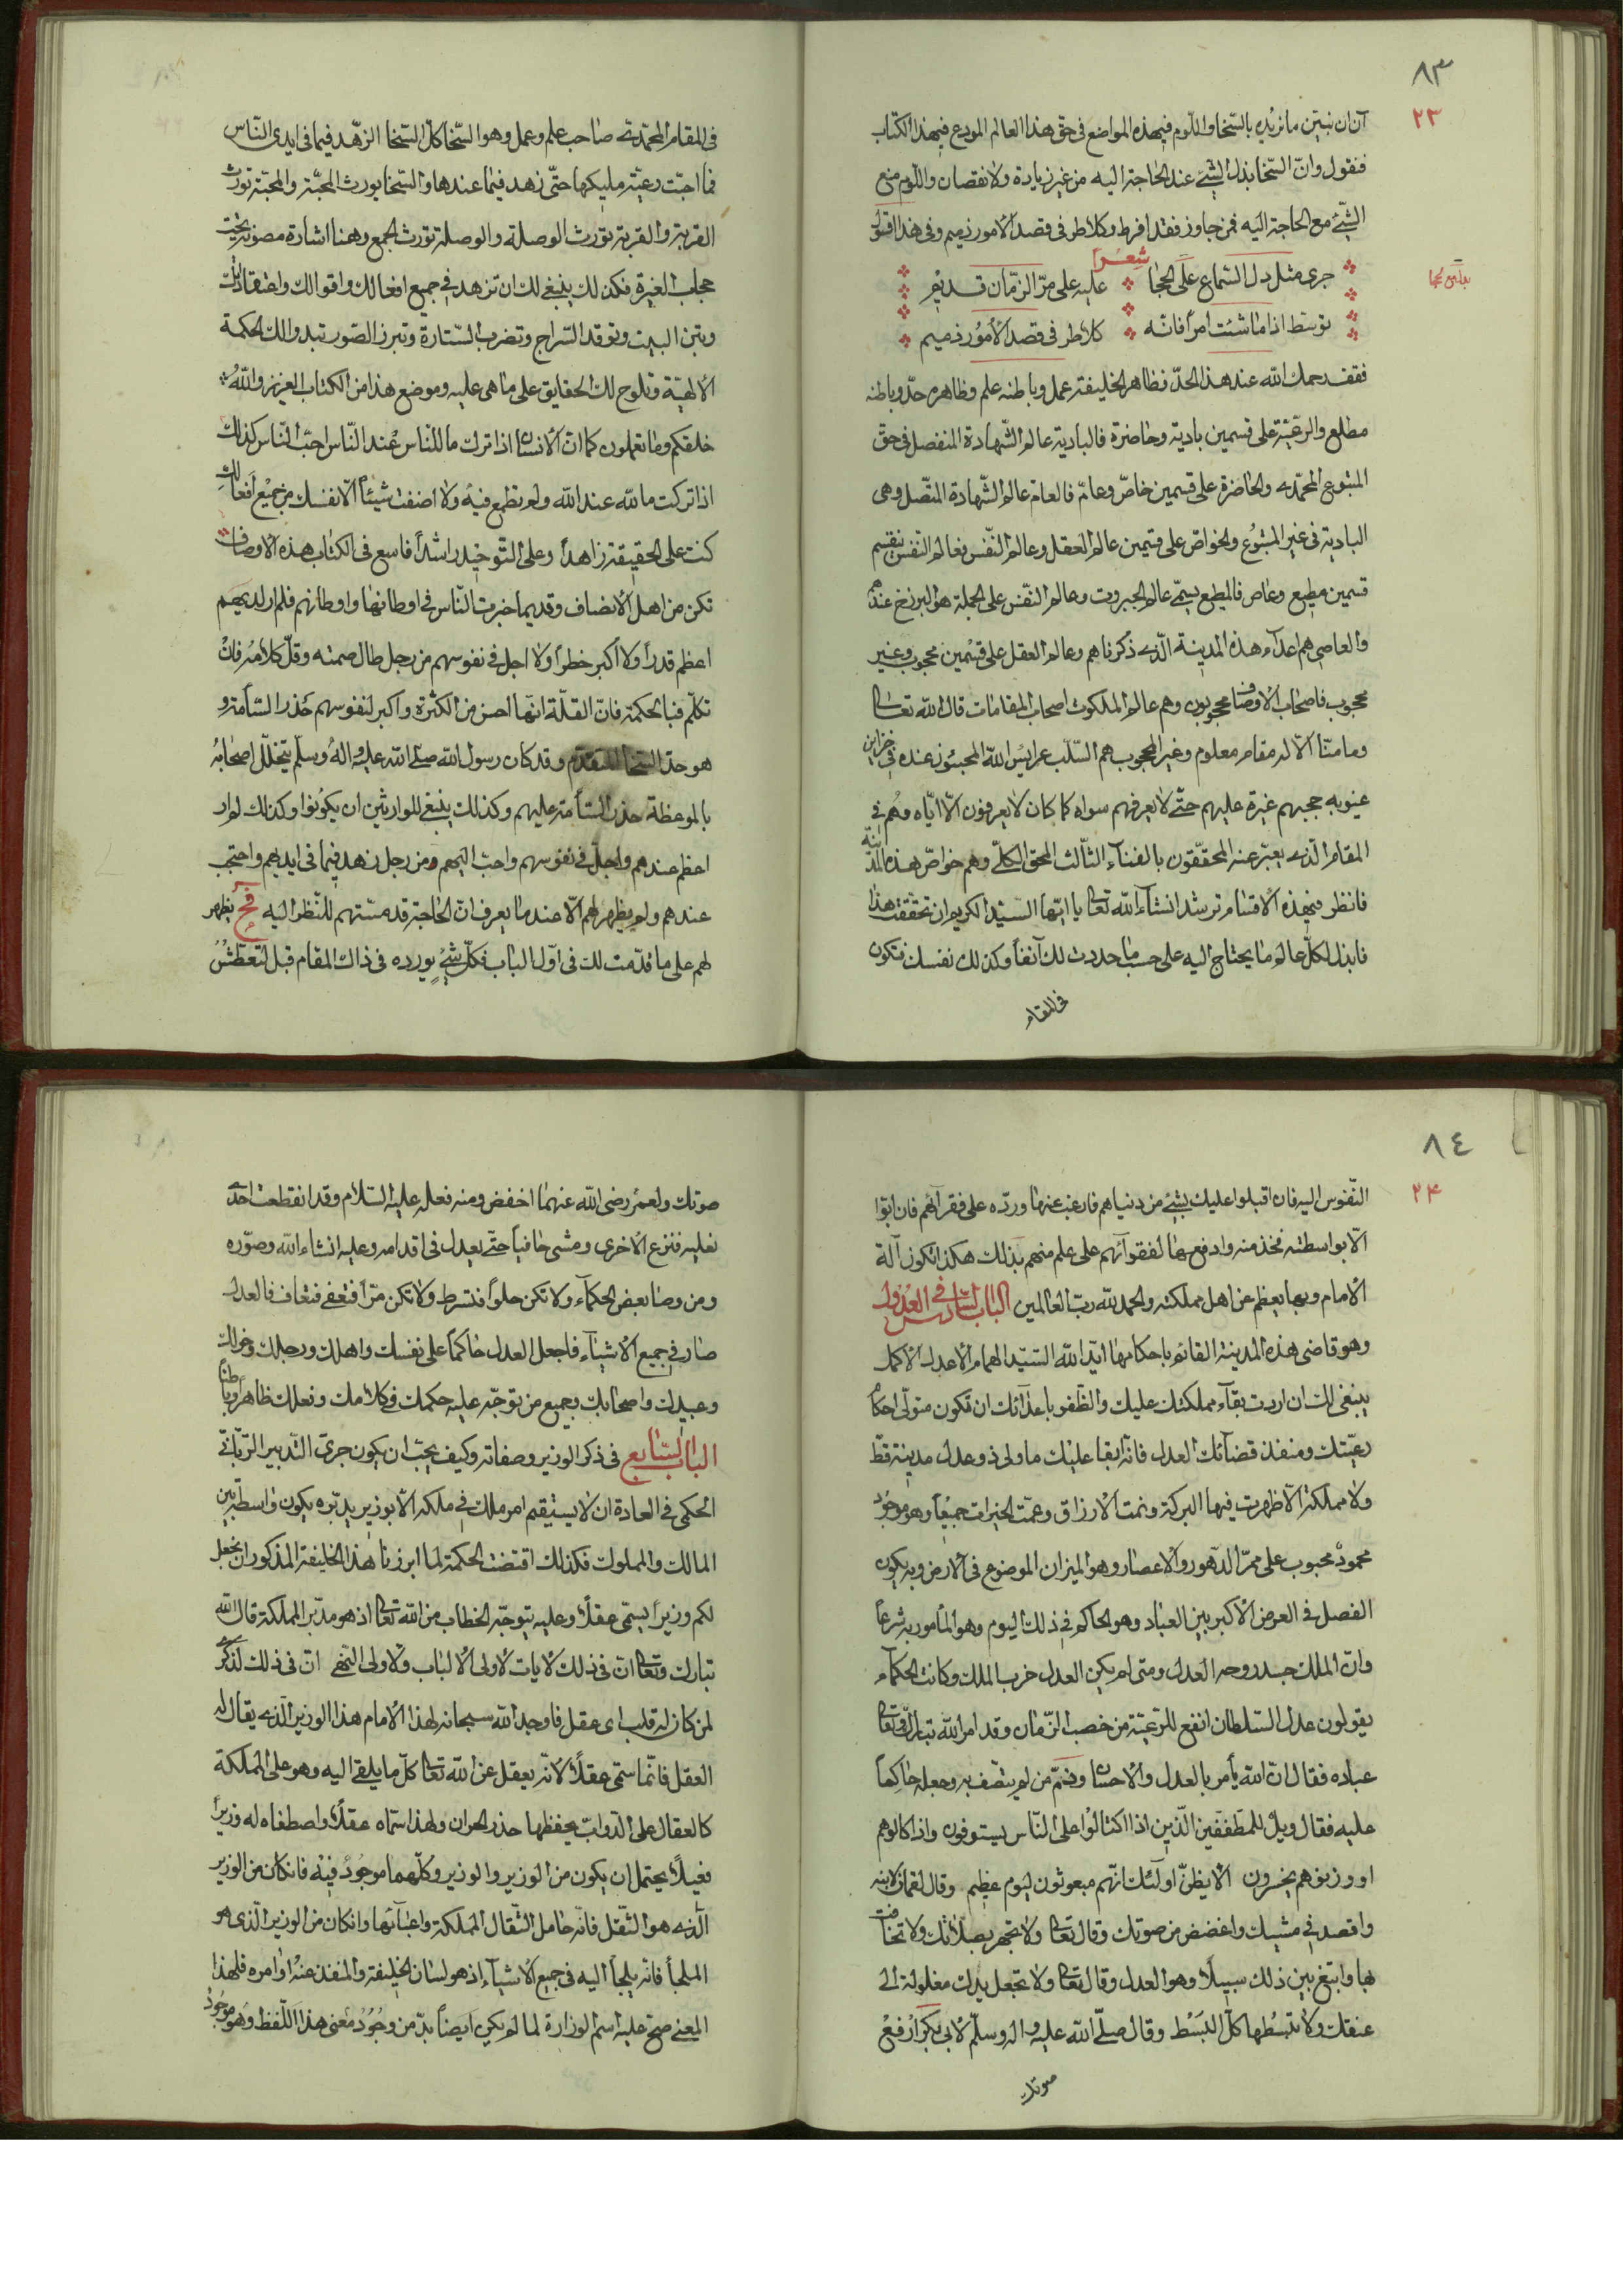 ٨٣
٢٣
آن ان نبيّن ما نريده بالسّخا واللّوم فى هذه المواضع فى حقّ هذا العالم المودع فى هذا الكتاب
فنقول وانّ السّخا بذل الشّئ عند الحاجة اليه من غير زيادة ولا نقصان واللّوم منع
الشّئ مع الحاجة اليه فمن جاوز فقد افرط وكلا طرفى قصد الامور ذميم وفى هذا اقول
شعراً
جرى مثل دلّ السّماع على الحجا علیه على مرّ الزّمان قديم
توسّط اذا ما شئت امراً فانّه كلا طرفى قصد الامور ذميم
فقف رحمك الله عند هذا الحدّ فظاهر الخليفة عمل وباطنه علم وظاهره حدّ وباطنه
مطلع والرّعيّة على قسمين بادية وحاضرة فالبادية عالم الشّهادة المنفصل فى حقّ
المتبوع المحمّديه والحاضرة على قسمين خاصّ وعامّ فالعامّ عالم الشّهادة المتّصل وهى
البادية فى غير المتبوع والخواصّ على قسمين عالم العقل وعالم النّفس فعالم النّفس ينقسم
قسمين مطيع وعاص فالمطيع يسمّى عالم الجبروت وعالم النّفس على الجملة هو البرزخ عندهم
والعاصى هم اعداء هذه المدينة الّذى ذكرناهم وعالم العقل على قسمين محجوب وغير
محجوب فاصحاب الاوصاف محجوبون وهم عالم الملكوت اصحاب المقامات قال الله تعالى
وما منّا الّا له مقام معلوم وغير المحجوب هم السّلب عرايس الله المحبسون عنده فى خزاين
غيوبه حجبهم غيرة عليهم حتّى لا يعرفهم سواه كما كان لا يعرفون الّا ايّاه وهم فى
المقام الّذى يعبّر عنه المحقّقون بالفناء الثّالث المحق الكلّى وهم خواصّ هذه المدينة
فانظر فى هذه الاقسام ترشد انشآء الله تعالى يا ايّها السّيّد الكريم ان تحقّقت هذا
فابذل لكلّ عالم ما يحتاج اليه على حسب ما حددت لك آنفاً وكذلك نفسك فتكون
فى المقام
فى المقام المحمّدى صاحب علم وعمل وهو السّخا كلّ السّخا الزّهد فيما فى ايدى النّاس
فما احبّت رعيّة مليكها حتّى زهد فيما عندها والسّخا يورث المحبّة والمحبّة تورث
القربة والقربة تورث الوصلة والوصلة تورث الجمع وهنا اشارة مصونة تحت
حجاب الغيرة فكذلك ينبغى لك ان تزهد فى جميع افعالك واقوالك واعتقاداتك
وبتن البيت وتوقد السّراج وتضرب السّتارة وتبرز الصّور تبد والك الحكمة
الالهيّة وتلوح لك الحقايق على ما هى عليه وموضع هذا من الكتاب العزيز والله
خلقكم وما تعملون كما انّ الانسان اذا ترك ما للنّاس عند النّاس احبّه النّاس كذلك
اذا تركت ما لله عند الله ولم تطمع فيه ولا اضفت شيئاً الّا نفسك من جميع افعالك
كنت على الحقيقة زاهداً وعلى التّوحيد راشداً فاسع فى اكتساب هذه الاوصاف
تكن من اهل الانصاف وقديما خبرت النّاس فى اوطانها واوطانهم فلم ار لديهم
اعظم قدراً ولا اكبر خطراً ولا اجل فى نفوسهم من رجل طال صمته وقلّ كلامه فان
تكلّم فبالحكمة فانّ القلّة انّها احسن من الكثرة واكبر لنفوسهم حذر السّآمة و
هو حدّ السّخا المتقدّم وقد كان رسول الله صلى الله عليه وآله وسلّم يتخلّل اصحابه
بالموعظة حذر السّآمة عليهم وكذلك ينبغى للوارثين ان يكونوا وكذلك لم ار
اعظم عندهم واجلّ فى نفوسهم واحبّ اليهم ومن رجل زهد فيما فى ايديهم واحتجب
عندهم ولم يظهر لهم الّا عند ما يعرف انّ الحاجة قد مسّتهم للنّظر اليه فح يظهر
لهم على ما قدّمت لك فى اوّل الباب فكلّ شئ يورده فى ذاك المقام قبل التّعطّش
٨٤
٢۴
النّفوس اليه فان اقبلوا عليك بشئ من دنياهم فارغب عنها وردّه على فقرآئهم فان ابوا
الّا بواسطته فخذ منه وادفع بها لفقرآئهم على علم منهم بذلك هكذا تكون آلة
الامام وبها يعظم عن اهل مملكته والحمد لله ربّ العالمين الباب السّادس فى العدل
وهو قاضى هذه المدينة القائم باحكامها ايّد الله السّيّد الهمام الاعدل الاكمل
ينبغى لك ان اردت بقآء مملكتك عليك والظّفر باعدآئك ان تكون متولّى احكام
رعيّتك ومنفذ قضآئك العدل فانّه ابقا عليك ما ولى ذو عدل مدينة قطّ
ولا مملكة الّا ظهرت فيها البركة ونمت الارزاق وعمّت الخيرات جميعاً وهو موجود
محمود محبوب على ممرّ الدّهور والاعصار وهو الميزان الموضوع فى الارض وبه يكون
الفصل فى العرض الاكبر بين العباد وهو الحاكم فى ذلك اليوم وهو المأمور به شرعاً
وانّ الملك جسد روحه العدل ومتى لم يكن العدل خرب الملك وكانت الحكمآء
يقولون عدل السّلطان انفع للرّعيّة من خصب الزّمان وقد امر الله تبارك وتعالى
عباده فقال انّ الله يأمر بالعدل والاحسان وذمّ من لم يتّصف به وجعله حاكماً
عليه فقال ويل للمطفّفين الّذين اذا اكتالوا على النّاس يستوفون واذا كالوهم
او وزنوهم يخسرون الا يظنّ اولئك انّهم مبعوثون ليوم عظيم وقال لقمان لابنه
واقصد فى مشيك واغضض من صوتك وقال تعالى ولا تجهر بصلاتك ولا تخافت
بها وابتغ بين ذلك سبيلا وهو العدل وقال تعالى ولا تجعل يدك مغلولة الى
عنقك ولا تبسطها كلّ البسط وقال صلّى الله عليه وآله وسلّم لابى بكر ارفع
صوتك
صوتك ولعمر رضى الله عنهما اخفض ومنه فعله عليه السّلام وقد انقطعت احدى
نعليه فنزع الاخرى ومشى حافياً حتّى يعدل فى اقدامه وعليه انشاء الله وصوّره
ومن وصا بعض الحكمآء ولا تكن حلواً فتسرط ولا تكن مرّاً فتعفى فتعاف فالعدل
صار فى جميع الاشيآء فاجعل العدل حاكماً على نفسك واهلك ورجلك وخولك
وعبيدك واصحابك وجميع من توجّه عليه حكمك وفى كلامك وفعلك ظاهراً وباطناً
الباب السّابع فى ذكر الوزير وصفاته وكيف يجب ان يكون جرى التّدبير الرّبّانى
الحكمى فى العادة ان لا يستقيم امر ملك فى ملكه الّا بوزير يدبّره يكون واسطة بين
المالك والمملوك فكذلك اقتضت الحكمة لما ابرزنا هذا الخليفة المذكور ان نجعل
لكم وزيراً يسمّى عقلاً وعليه يتوجّه الخطاب من الله تعالى اذ هو مدبّر المملكة قال الله
تبارك وتعالى انّ فى ذلك لآيات لاولى الالباب ولاولى النّهى انّ فى ذلك لذكرى
لمن كان له قلب اى عقل فاوجد الله سبحانه لهذا الامام هذا الوزير الّذى يقال له
العقل فانّما سمّى عقلاً لانّه يعقل عن الله تعالى كلّ ما يلقى اليه وهو على المملكة
كالعقال على الدّوابّ يحفظها حذر الحران ولهذا سمّاه عقلاً واصطفاه له وزيراً
فعيلاً يحتمل ان يكون من الوزير والوزير وكلّهما موجود فيه فان كان من الوزير
الّذى هو الثّقل فانّه حامل اثقال المملكة واعبآئها وان كان من الوزير الّذى هو
الملجأ فانّه يلجأ اليه فى جميع الاشيآء اذ هو لسان الخليفة والمنفذ عنه اوامره فلهذا
المعنى صحّ عليه اسم الوزارة لما لم يكن ايضاً بدّ من وجود معنى هذا اللّفظ وهو موجود